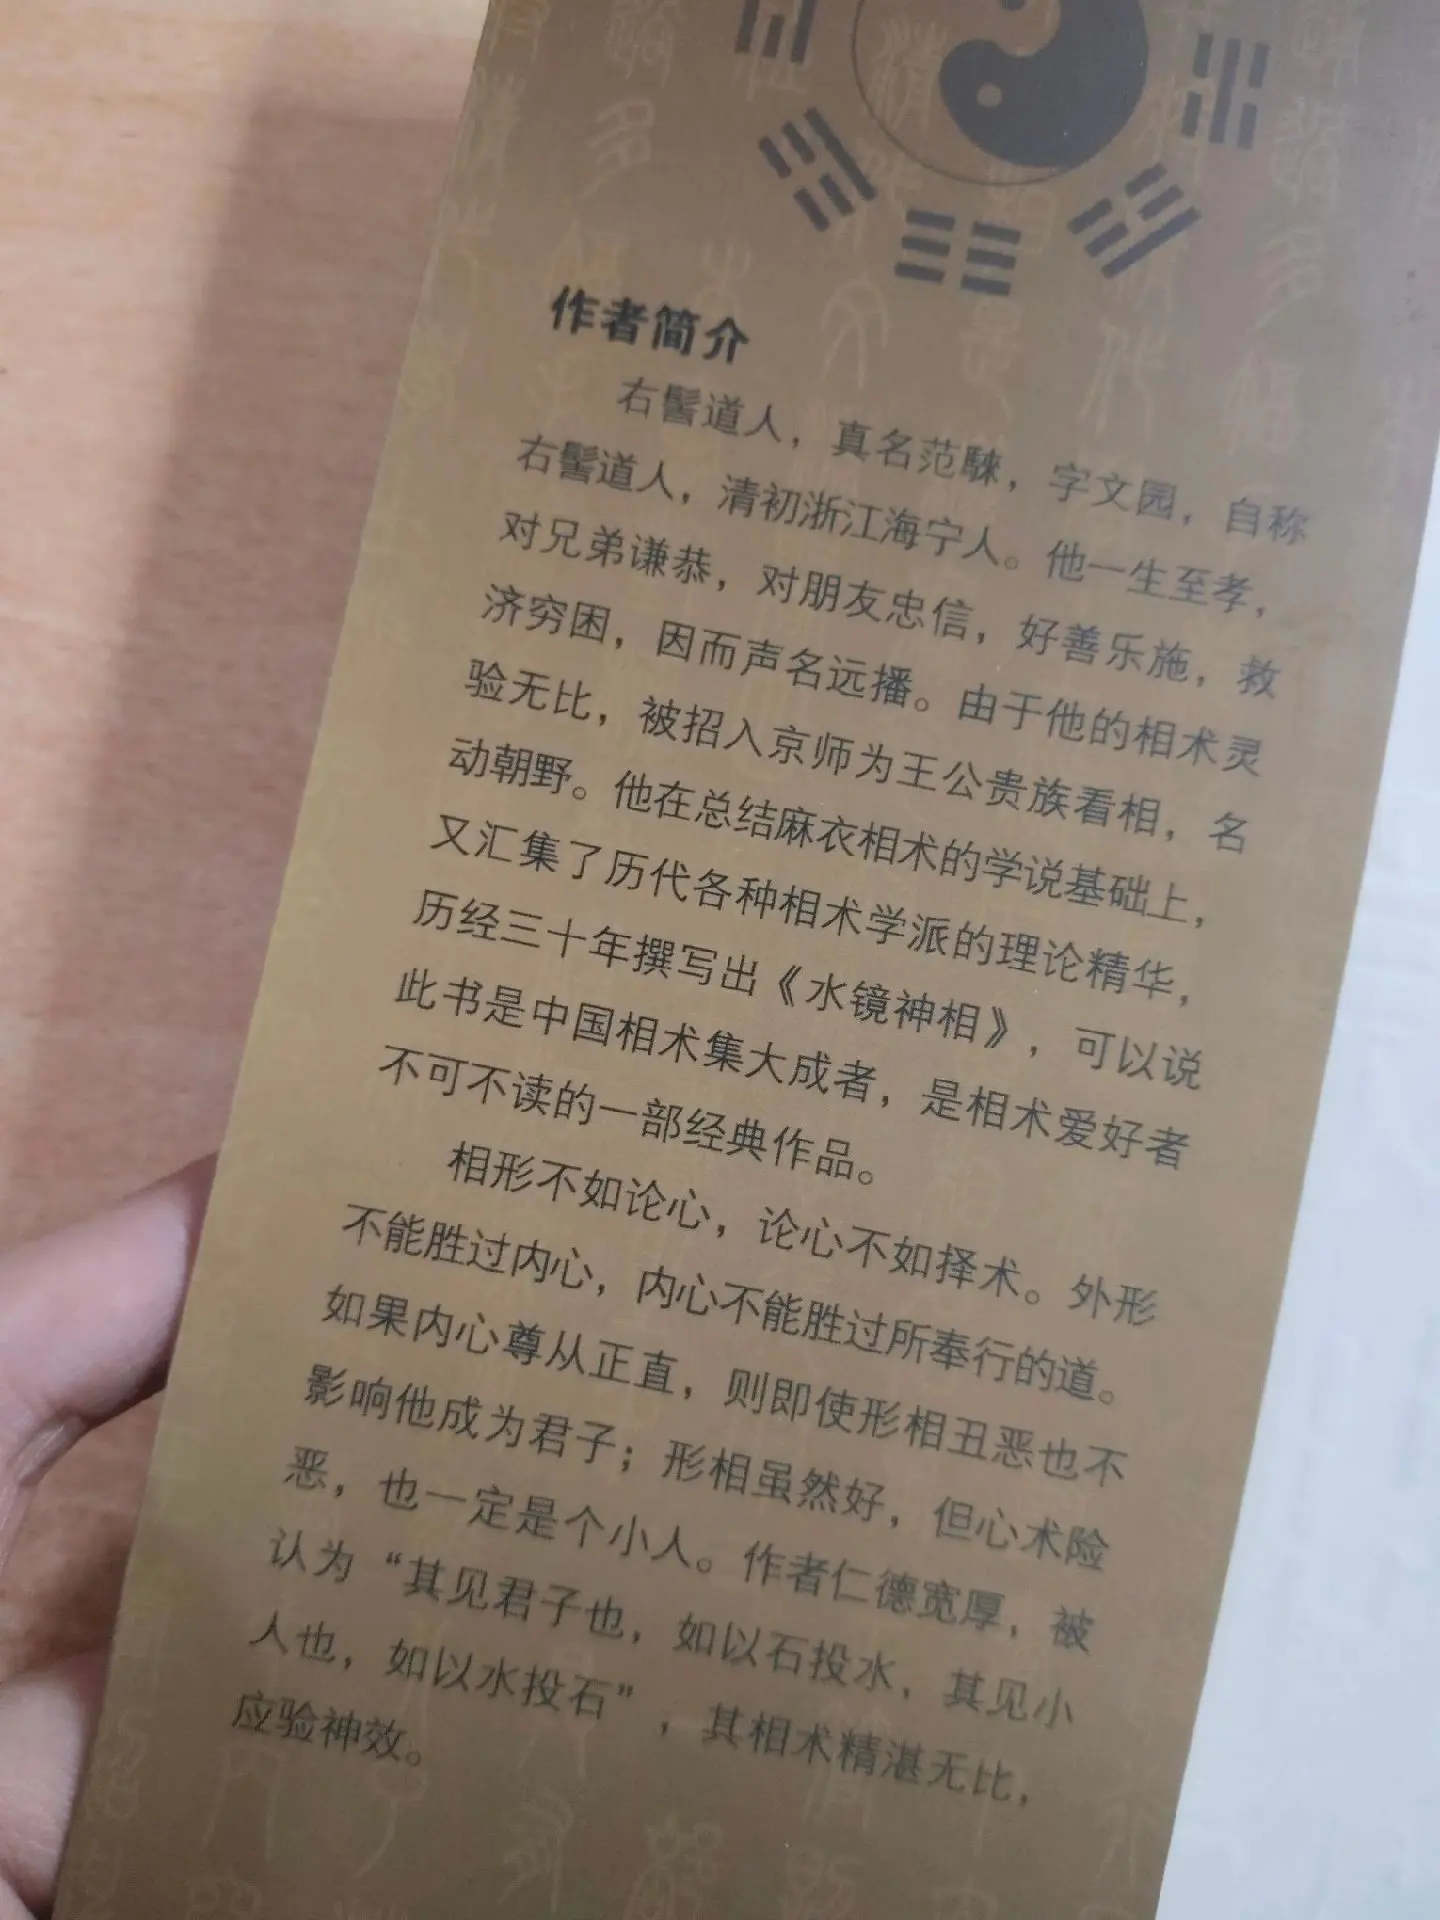 作者简介
右髻道人，真名范騋，字文园，自称
右髻道人，清初浙江海宁人。他一生至孝，
对兄弟谦恭，对朋友忠信，好善乐施，救
济穷困，因而声名远播。由于他的相术灵
验无比，被招入京师为王公贵族看相，名
动朝野。他在总结麻衣相术的学说基础上，
又汇集了历代各种相术学派的理论精华，
历经三十年撰写出《水镜神相》，可以说
此书是中国相术集大成者，是相术爱好者
不可不读的一部经典作品。
相形不如论心，论心不如择术。外形
不能胜过内心，内心不能胜过所奉行的道。
如果内心尊从正直，则即使形相丑恶也不
影响他成为君子；形相虽然好，但心术险
恶，也一定是个小人。作者仁德宽厚，被
认为“其见君子也，如以石投水，其见小
人也，如以水投石”，其相术精湛无比，
应验神效。